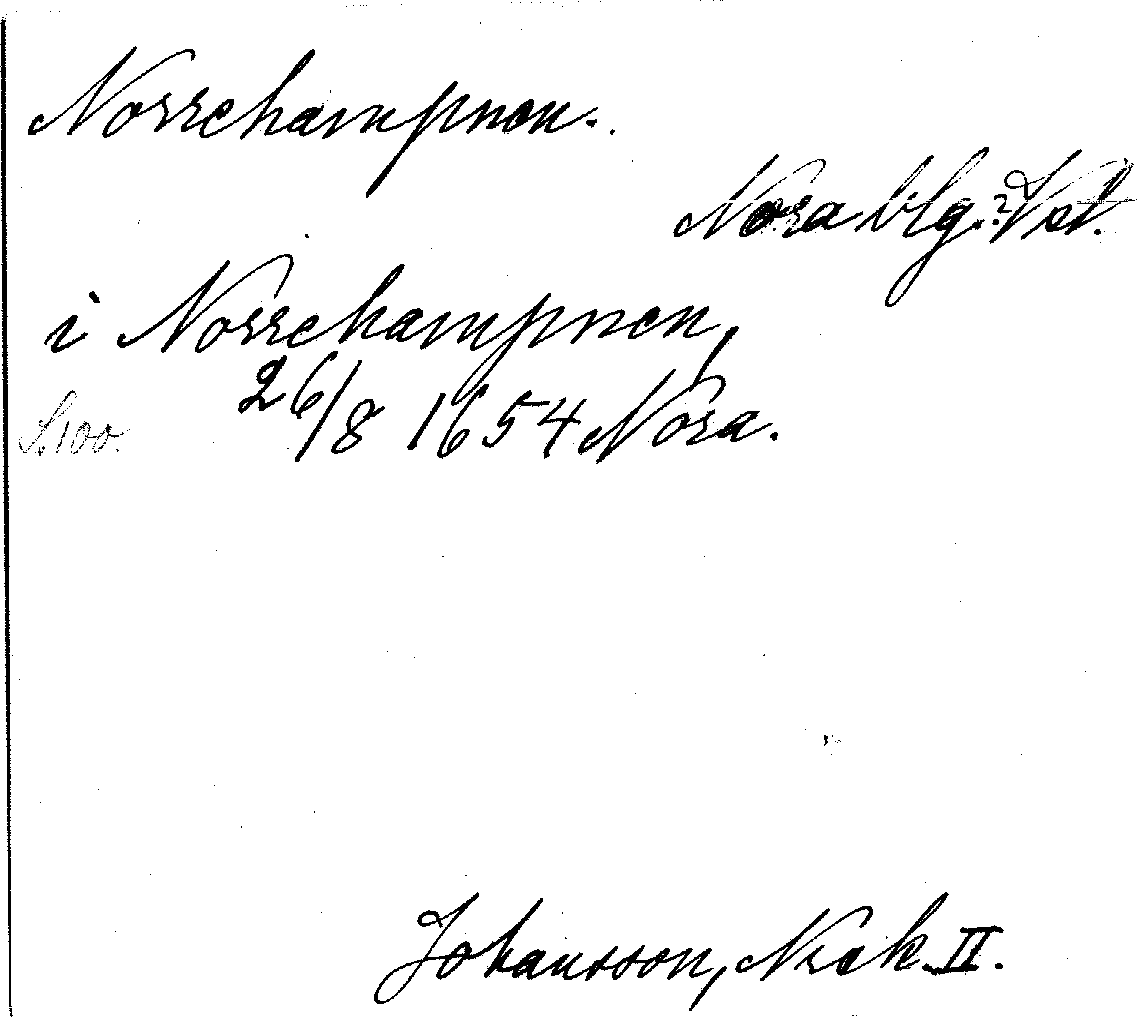 Norrehampnen.
Nora blg.? Vstl.
i Norrehampnen,
S. 100. 26/8 1654 Nora.
Johansson, Nrak. II.